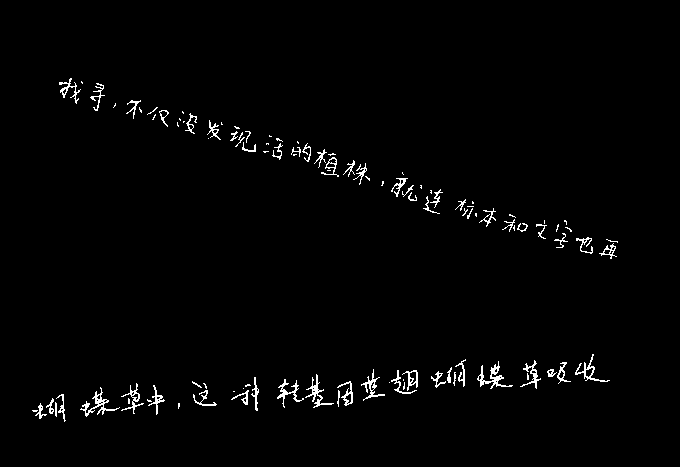 找寻，不仅没发现活的植株，就连标本和文字也再
蝴蝶草中，这种转基因蓝翅蝴蝶草吸收